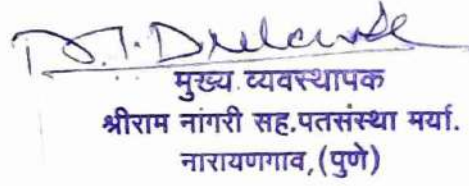 मुख्य व्यवस्थापक
श्रीराम नागरी सह.पतसंस्था मर्या.
नारायणगाव,(पुणे)